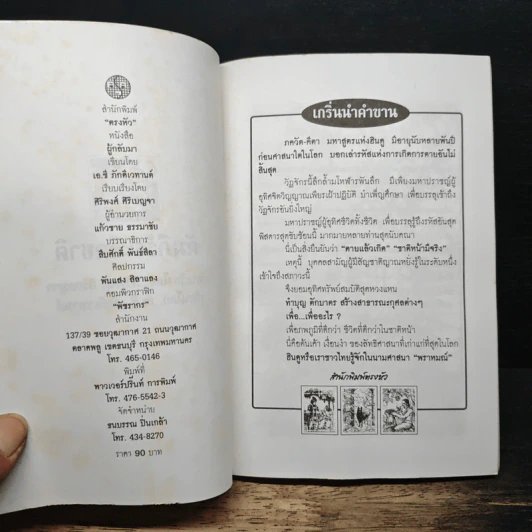 สำนักพิมพ์
"ตรงหัว"
หนังสือ
ผู้กลับมา
เขียนโดย
เอ.ซี ภักติเวทานต์
เรียบเรียงโดย
ศิริพงศ์ ศิริเบญจา
ผู้อำนวยการ
แก้วชาย ธรรมาชัย
บรรณาธิการ
สิบศักดิ์ พันธ์ลิลา
ศิลปกรรม
พันแสง ศิลาแลง
คอมพิวกราฟิก
"พัชรากร"
สำนักงาน
137/39 ซอยวุฒากาศ 21 ถนนวุฒากาศ
ตลาดพลู เขตธนบุรี กรุงเทพมหานคร
โทร. 465-0146
พิมพ์ที่
พาวเวอร์ปริ๊นท์ การพิมพ์
โทร. 476-5542-3
จัดจำหน่าย
ธนบรรณ ปิ่นเกล้า
โทร. 434-8270
ราคา 90 บาท
เกริ่นนำคำขาน
ภควัต-คีตา มหาสูตรแห่งฮินดู มีอายุนับหลายพันปี
ก่อนศาสนาใดในโลก บอกเล่ารหัสแห่งการเกิดการตายอันไม่
สิ้นสุด
วัฏจักรนี้ลึกล้ำมโหฬารพันลึก มีเพียงมหาปราชญ์ผู้
อุทิศจิตวิญญาณเพียรเฝ้าปฏิบัติ บำเพ็ญศึกษา เพื่อบรรลุเข้าถึง
วัฏจักรอันยิ่งใหญ่
มหาปราชญ์ผู้อุทิศชีวิตทั้งชีวิต เพื่อบรรลุถึงรหัสอันสุด
พิสดารสุดซับซ้อนนี้ มากมายหลายท่านสุดนับคณา
นี่เป็นสิ่งยืนยันว่า "ตายแล้วเกิด" "ชาติหน้ามีจริง"
เหตุนี้ บุคคลสามัญผู้มีสัญชาติญาณหยั่งรู้ในระดับหนึ่ง
เข้าใจถึงสภาวะนี้
จึงยอมอุทิศทรัพย์สมบัติสุดหวงแหน
ทำบุญ ตักบาตร สร้างสาธารณะกุศลต่างๆ
เพื่อ...เพื่ออะไร ?
เพื่อภพภูมิที่ดีกว่า ชีวิตที่ดีกว่าในชาติหน้า
นี่คือต้นเค้า เงื่อนงำ ของลัทธิศาสนาที่เก่าแก่ที่สุดในโลก
ฮินดูหรือเราชาวไทยรู้จักในนามศาสนา "พราหมณ์"
สำนักพิมพ์ตรงหัว